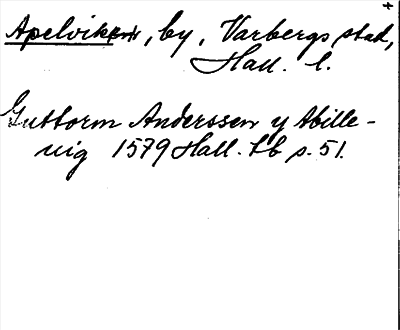 Apelviken, by, Varbergs stad,
Hall. l.
Guttorm Anderssen y Abille-
uig 1579 Hall. Lb s. 51.